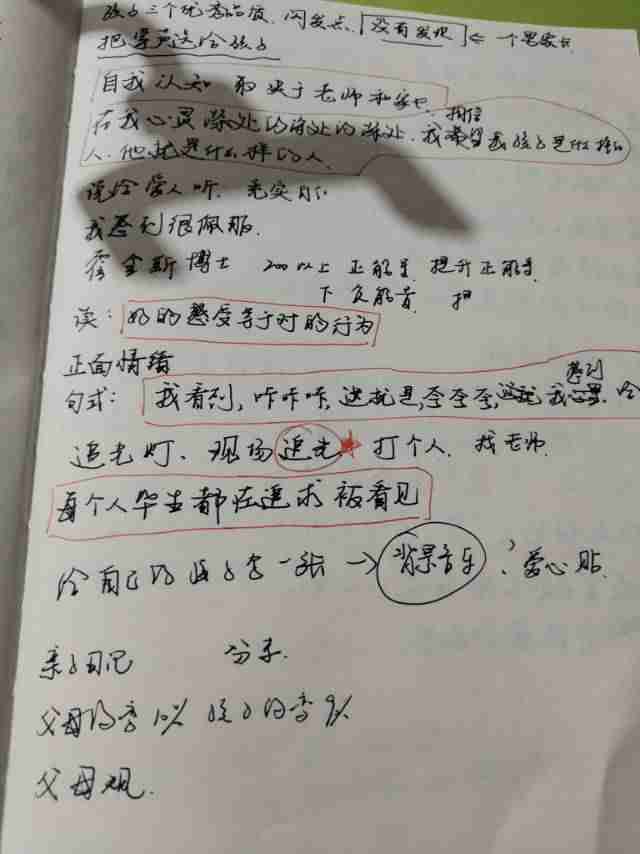 孩子三个优秀品质、闪发点、没有发现 ← 一个
把 这给孩子
自我认知 取决于老师和家长
在我心灵深处的深处的深处、我相信我孩子是什么样的
人、他就是什么样的人
说给爱人听、
我感到很佩服、
霍金斯博士 200以上 正能量 提升正能量
下负能量
读：好的感受等于对的行为
正面情绪
句式：我看到，咔咔咔，这就是，李李李，我感到
追光灯、现场追光★ 打个人、找老师
每个人毕生都在追求被看见
给自己的孩子写一张→背景音乐、爱心贴
亲子日记 分享、
父母的变10% 孩子的变
父母观、